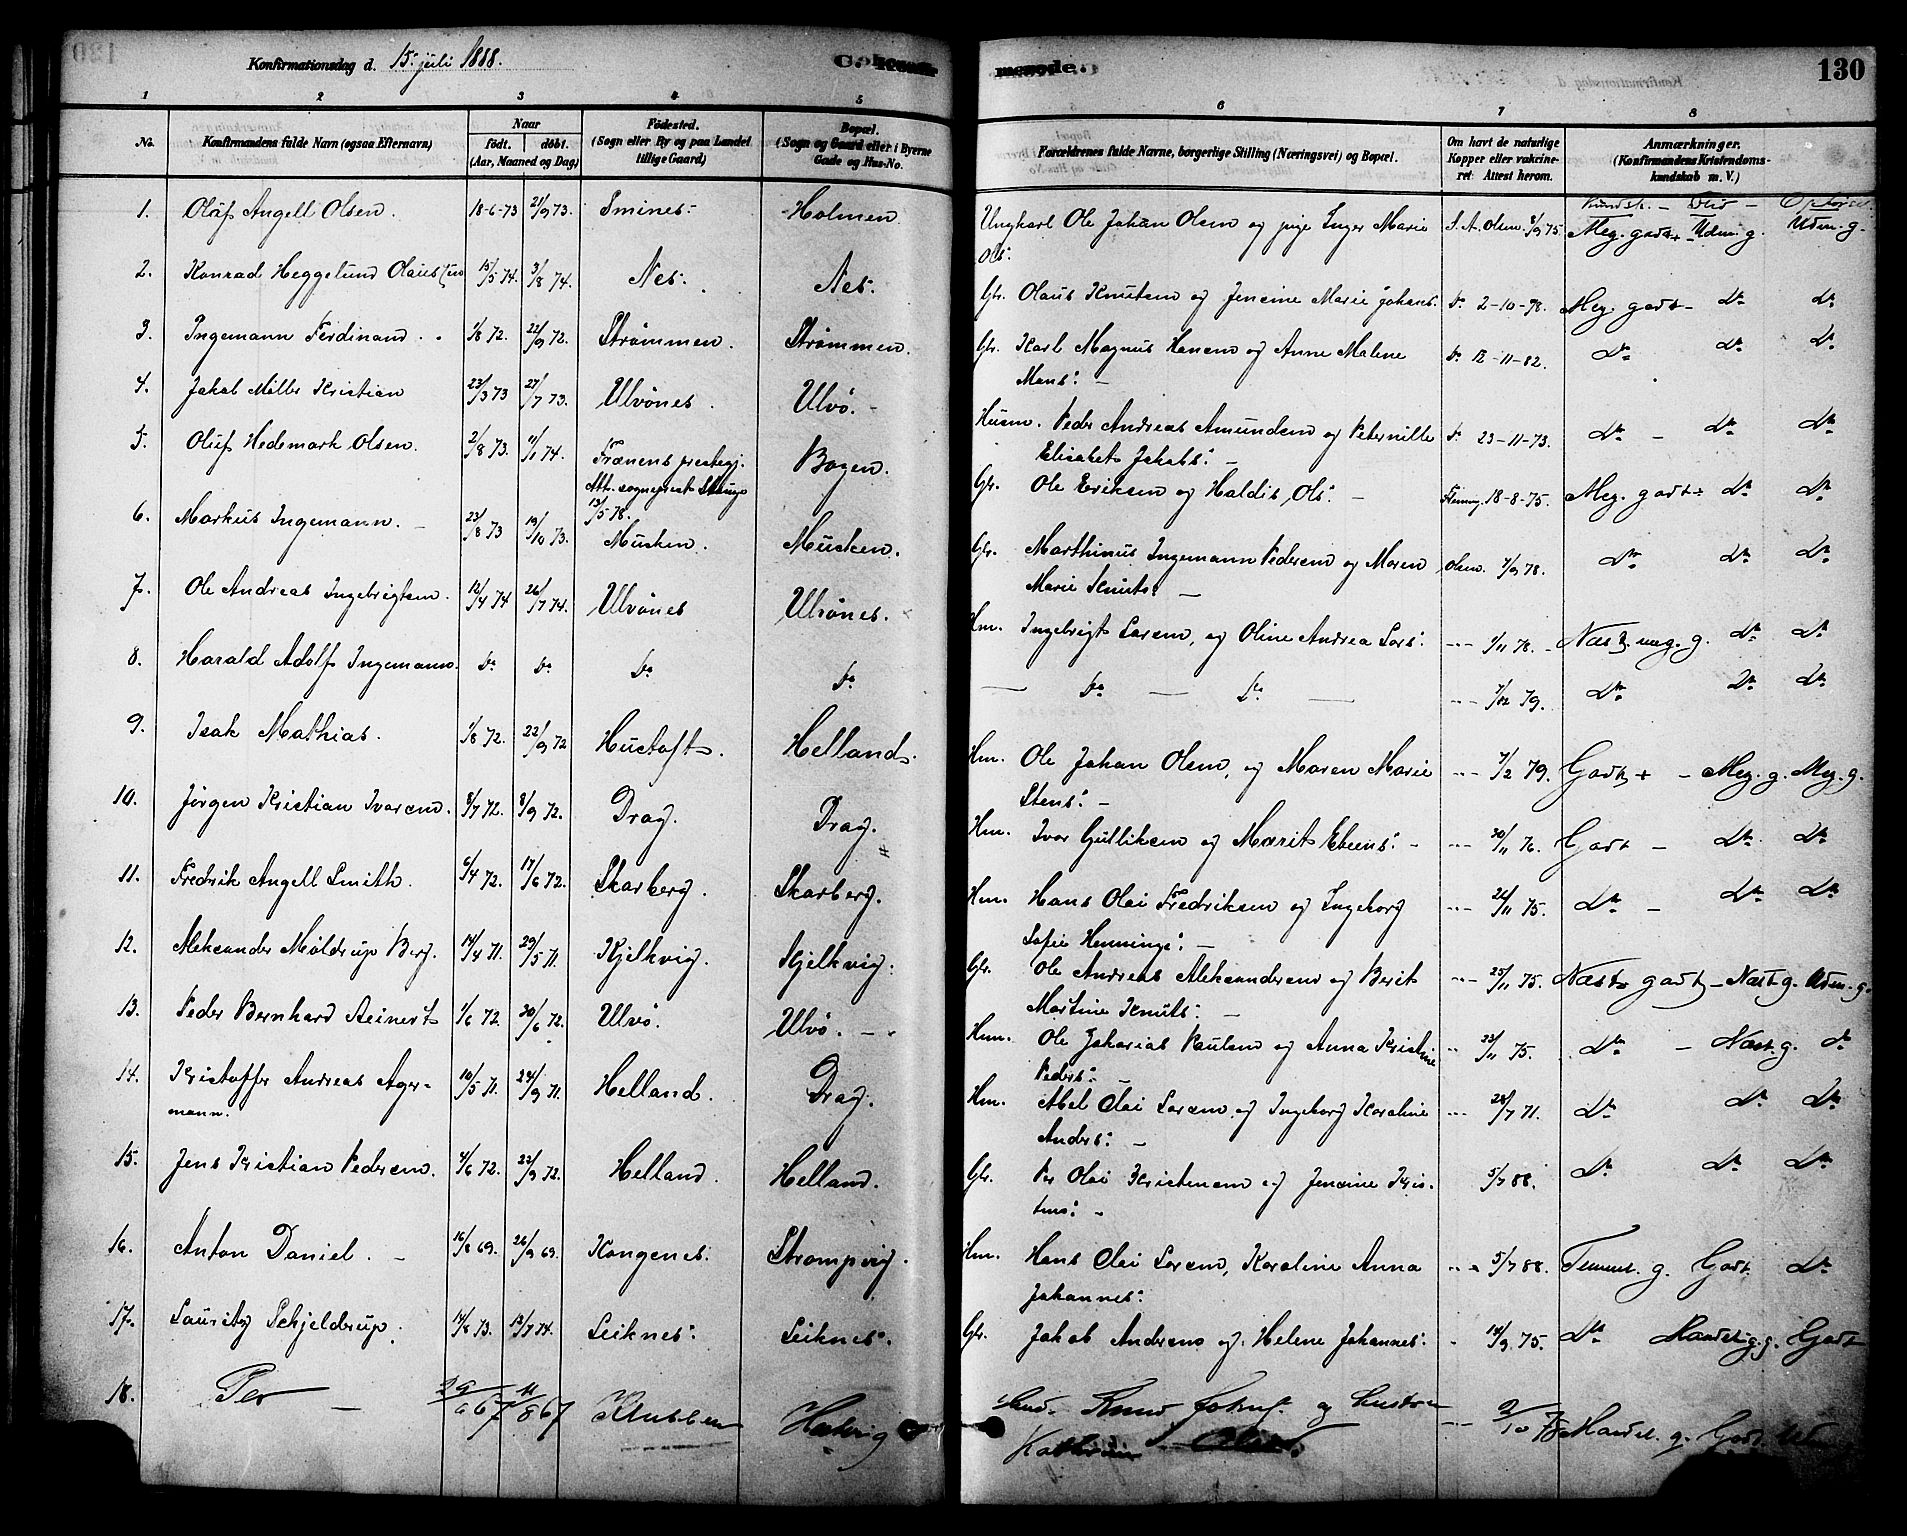 Konfirmationsdag d. 15. juli 1888.
130
1 2 3 4 5 6 7 8
No. Konfirmandens fulde Navn (ogsaa Efternavn) Naar født. døbt. (Aar, Maaned og Dag) Fødested. (Sogn eller By og paa Landet tillige Gaard) Bopæl. (Sogn og Gaard eller i Byerne Gade og Hus-No. Forældrenes fulde Navne, borgerlige Stilling (Næringsvei) og Bopæl. Om havt de naturlige Kopper eller vakcineret. Attest herom. Anmærkninger. (Konfirmandens Kristendomskundskab m. V.)
Kundsk. – Flid – Opførsel.
1. Oluf Angell Olsen. 18-6-73 21/9 73. Smines: Holmen Ungkarl Ole Johan Olsen og pige Inger Marie Ols: S. A. Olsen. 8/9 75 Meg. godt + Udm. g. Udm. g.
2. Konrad Heggelund Olaussen 15/5 74. 3/8 74. Nes: Nes: Gbr. Olaus Knutsen og Jensine Marie Johans: Do 2-10-78. Meg. godt – do do
3. Ingemann Ferdinand 1/8 72. 22/9 72. Strømmen. Strømmen. Gbr. Karl Magnus Hansen og Anne Malene Mons: – Do 12-11-82. do do do
4. Jakob Møller Kristian 23/3 73 27/7 73. Ulvønes. Ulvö. – Husm. Peder Andreas Amundsen og Peternille Elisabet Jakobs: – Do 23-11-73. do – do do
5. Oluf Hedemark Olsen. 2/8 73. 11/1 74. Frænens prestegj. Att. sogneprest Skaugo 13/5 78. Bogen. Gbr. Ole Eriksen og Haldis Ols: – 18-8-75. Meg. godt ÷ do do
6. Markus Ingemann. – 23/8 73 19/10 73. Musken. Musken. Gbr. Marthinus Ingemann Pedersen og Maren Marie Knuts: – Olsen 7/9 78. do do do
7. Ole Andreas Ingebrigtsen. 12/4 74 26/7 74. Ulvönes Ulvönes. Hm. Ingebrigt Larsen, og Oline Andrea Lars: 1/11 78. – Næst. meg. g. do do
8. Harald Adolf Ingemann. Do Do Do Do – Do – Do – 79. do do do
9. Isak Mathias. 1/8 72. 22/9 72 Hustoft. Helland. Hm. Ole Johan Olsen, og Maren Marie Stens: – 7/2 79. Godt + – Meg. g. Meg. g.
10. Jørgen Kristian Ivarsen. 8/7 72. 8/9 72. Drag. Drag. Hm. Ivar Gulliksen og Marit Ebens: – 30/11 76. Godt – do do
11. Fredrik Angell Smith. 6/4 72. 17/6 72. Skarberg. Skarberg. Hm. Hans Olai Fredriksen og Ingeborg Sofie Hennings: – 26/11 75. do – do do
12. Aleksander Møldrup Berg. 14/4 71. 29/5 71. Kjelkvig. Kjelkvig. Gbr. Ole Andreas Aleksandersen og Berit Martine Knuts: – 25/11 75. Næst. godt – Næst g. Udm. g.
13. Peder Bernhard Reinert 1/6 72. 30/6 72. Ulvö. Ulvö. – Hm. Ole Zakarias Paulsen og Anna Kristine Peders: – 23/11 75. do – Næst. g. do
14. Kristoffer Andreas Agermann. 10/5 71. 24/9 71. Helland. Drag. Hm. Abel Olai Larsen og Ingeborg Karoline Anders: – 28/7 71. do do do
15. Jens Kristian Pedersen. 4/6 72. 22/9 72. Helland. Helland. Gbr. Per Olai Kristensen og Jensine Kristens: – 5/7 88. do do do
16. Anton Daniel. – 16/8 69. 26/9 69. Kongenes: Strompvig. Hm. Hans Olai Larsen, Karoline Anna Johannes: 5/7 88. Temmel. g. Godt. do
17. Lauritz Schjeldrup. 14/8 73. 13/7 74. Leiknes: Leiknes: Gbr. Jakob Andersen og Helene Johannes: 14/9 75. do Maadel. g. Godt
18. Per – 67 11/8 67 Klubben Knud og Kathrine 9/10 Maadel. g. Godt.